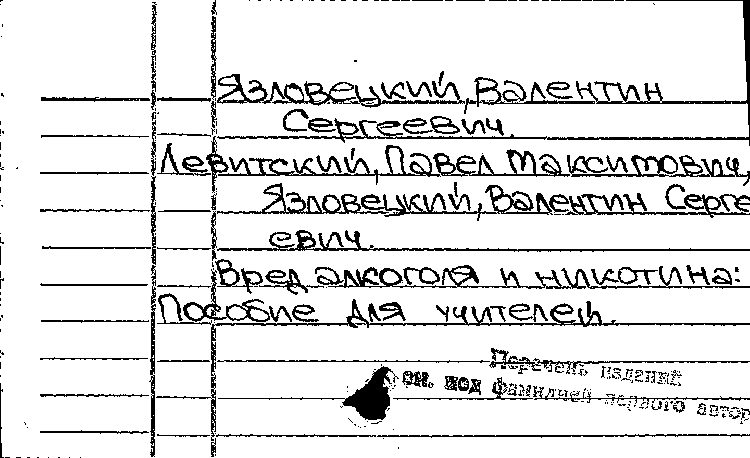 Язловецкий, Валентин
Сергеевич.
Левитский, Павел Максимович,
Язловецкий, Валентин Серге
евич.
Вред алкоголя и никотина:
Пособие для учителей.
Перечень изданий
см. под фамилией первого автор